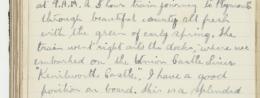 at 9 A.M. A 5 hour train journey to Plymouth
through beautiful country all fresh
with the green of early spring. The
train went right into the docks, where we
embarked on the Union Castle Liner
"Kenilworth Castle". I have a good
position on board. this is a splendid